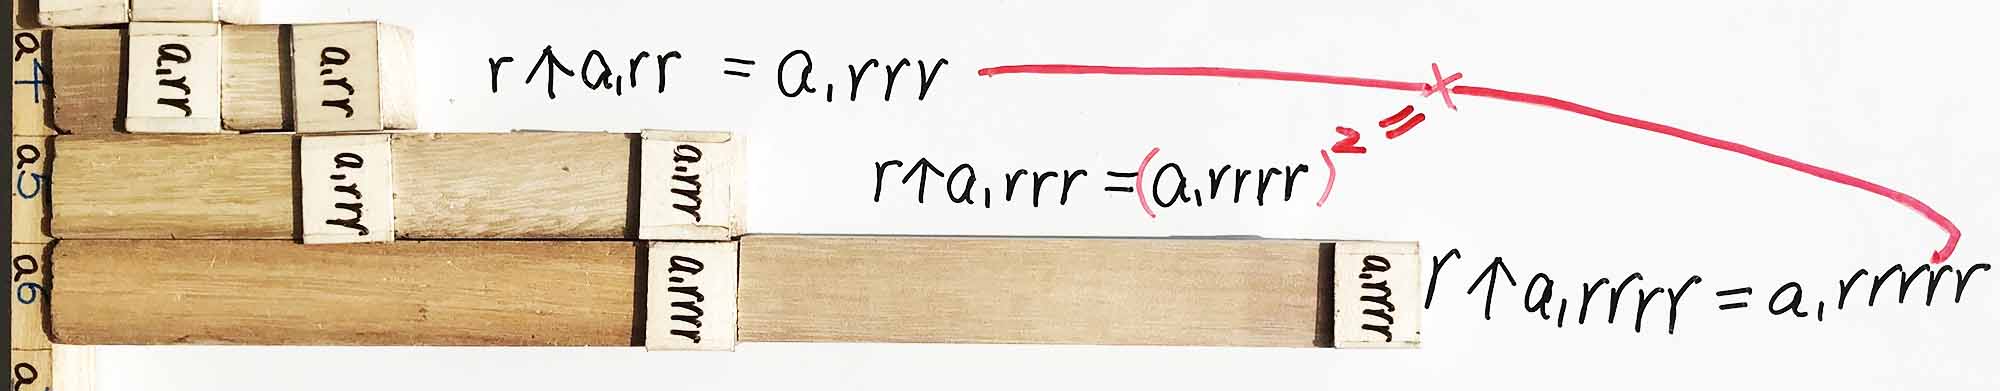 a4 a,rr a,rr r↑a,rr = a,rrr ×
a5 a,rrr a,rrr r↑a,rrr =(a,rrrr)² =
a6 a,rrrr a,rrrr r↑a,rrrr = a,rrrrr
a